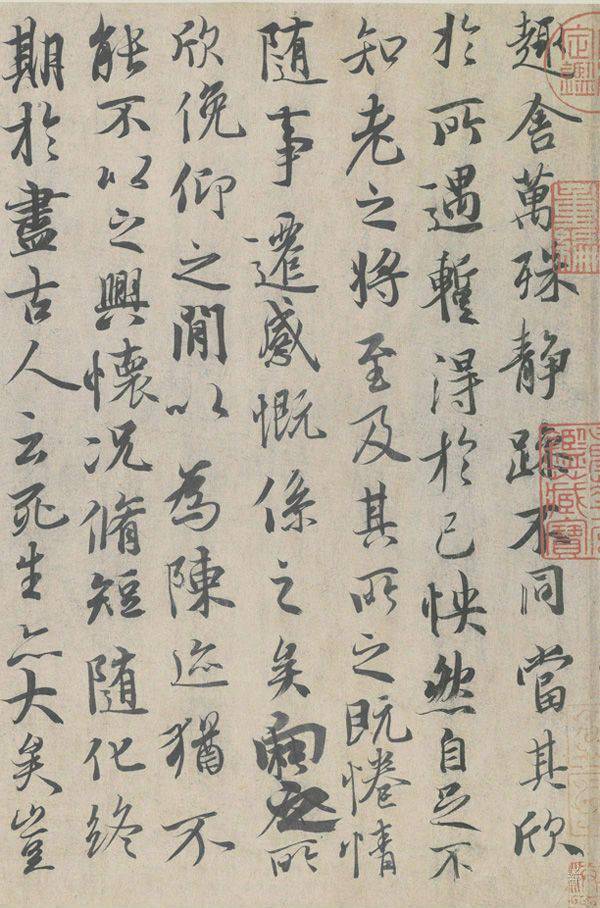 趣舍萬殊静躁不同當其欣
於所遇蹔得於己怏然自足不
知老之將至及其所之既惓情
随事遷感慨係之矣向之所
欣俛仰之閒以為陳迹猶不
能不以之興懷況脩短随化終
期於盡古人云死生亦大矣豈